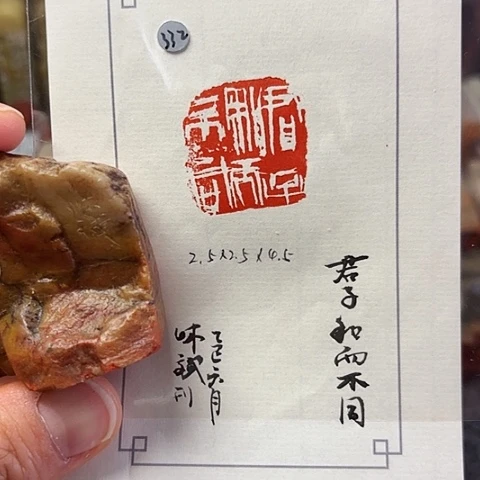 332
2.5×2.5×4.5
君子和而不同
乙巳六月
味斌刊